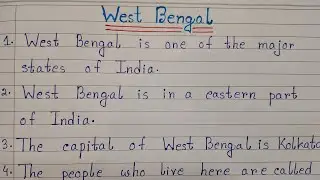 West Bengal
1. West Bengal is one of the major
states of India.
2. West Bengal is in a eastern part
of India.
3. The capital of West Bengal is Kolkata
4. The people who live here are called